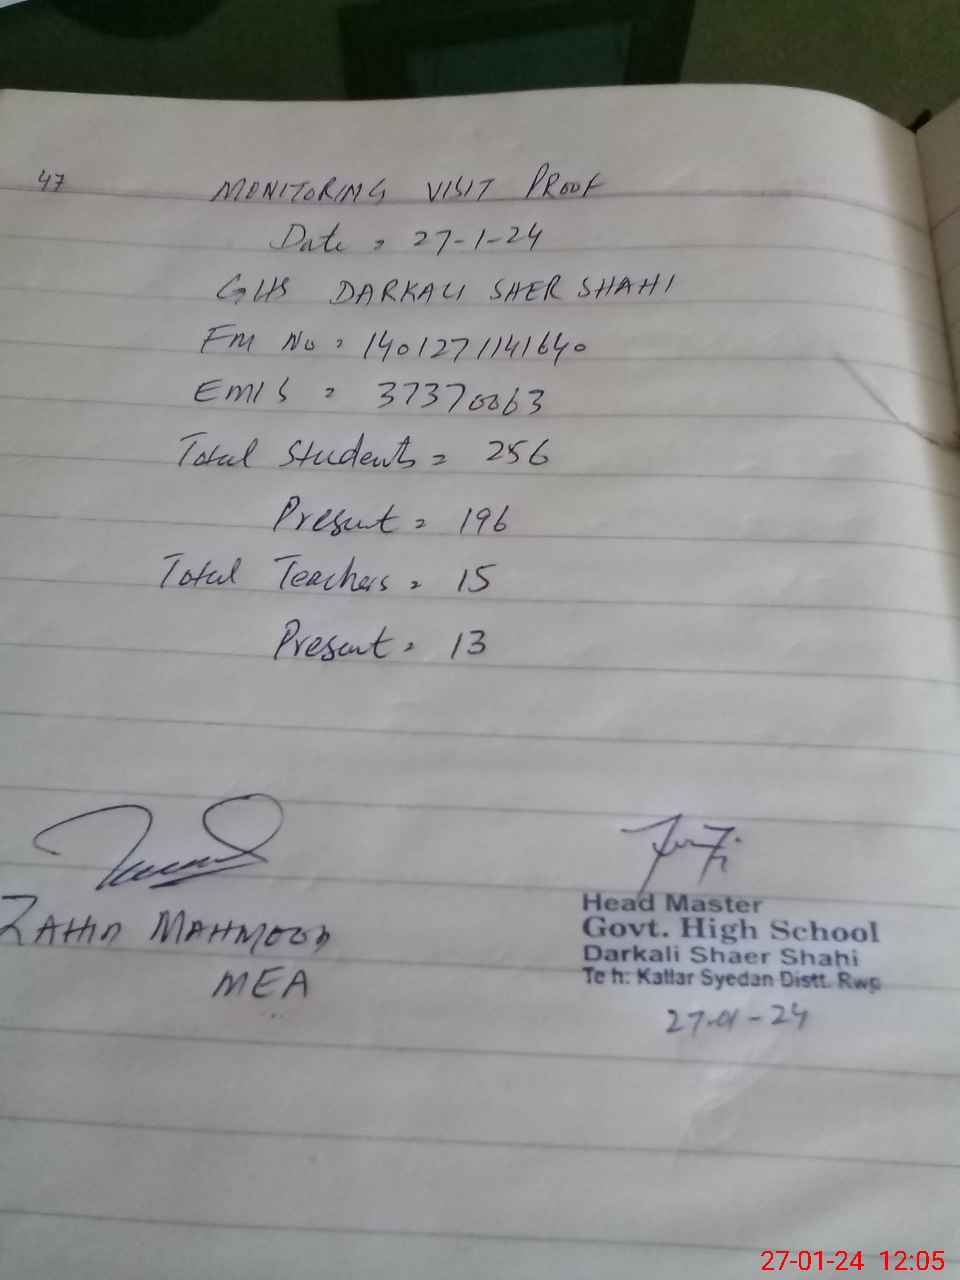 47
MONITORING VISIT PROOF
Date = 27-1-24
GHS DARKALI SHER SHAHI
FM No = 1401271141640
EMIS = 37370063
Total Students = 256
Present = 196
Total Teachers = 15
Present = 13
ZAHID MAHMOOD
MEA
Head Master
Govt. High School
Darkali Shaer Shahi
Teh: Kallar Syedan Distt. Rwp
27-01-24
27-01-24 12:05